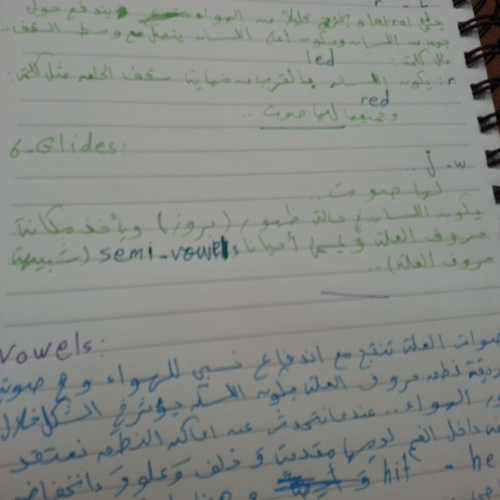 r - L
يسمى lateral ويخرج قليلا من الهواء ويندفع حول
جوانب اللسان ويكون أعلى اللسان يتصل مع وسط السقف..
مثل كلمة: led
r: يكون اللسان بالقرب من سقف الحلق مثل كلمة:
red
وجميعها لها صوت ..
6-Glides:
j - w ..
لها صوت ..
يكون اللسان في حالة ظهور (بروز) ويأخذ مكانة
حروف العلة ويسمى أحيانا semi-vowels (شبيهة
حروف العلة) ..
Vowels:
صوات العلة تنتج مع اندفاع نسبي للهواء وهي صوتية
طريقة نطق حروف العلة يكون اللسان يؤثر في الشكل خلال
الهواء.. عندما نتحدث عن اماكن النطق نعتقد
داخل الفم لديها مقدمة وخلف وعلو وانخفاض
hit - he